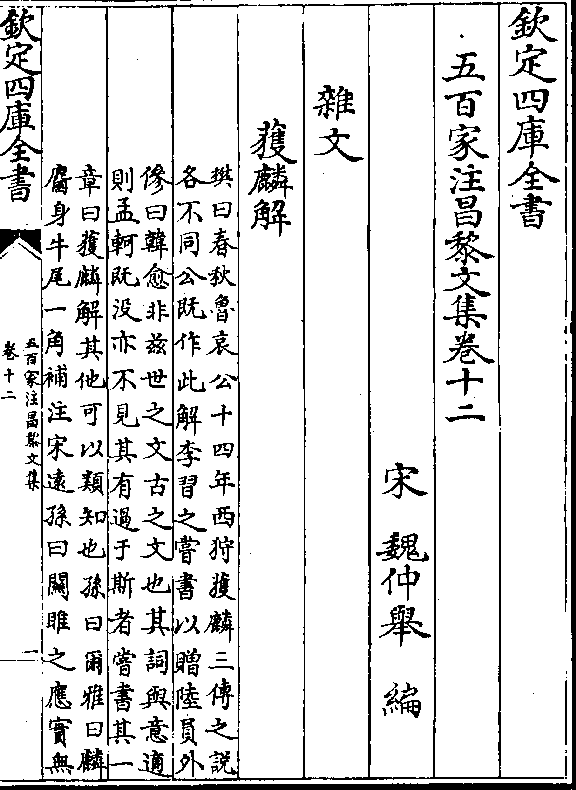 欽定四庫全書
五百家注昌黎文集卷十二
宋 魏仲舉 編
雜文
獲麟解
樊曰春秋魯哀公十四年西狩獲麟三傳之說
各不同公既作此解李習之嘗書以贈陸員外
傪曰韓愈非兹世之文古之文也其詞與意適
則孟軻既没亦不見其有過于斯者嘗書其一
章曰獲麟解其他可以類知也孫曰爾雅曰麟
麕身牛尾一角補注宋遠孫曰關雎之應實無
欽定四庫全書
五百家注昌黎文集
卷十二
一